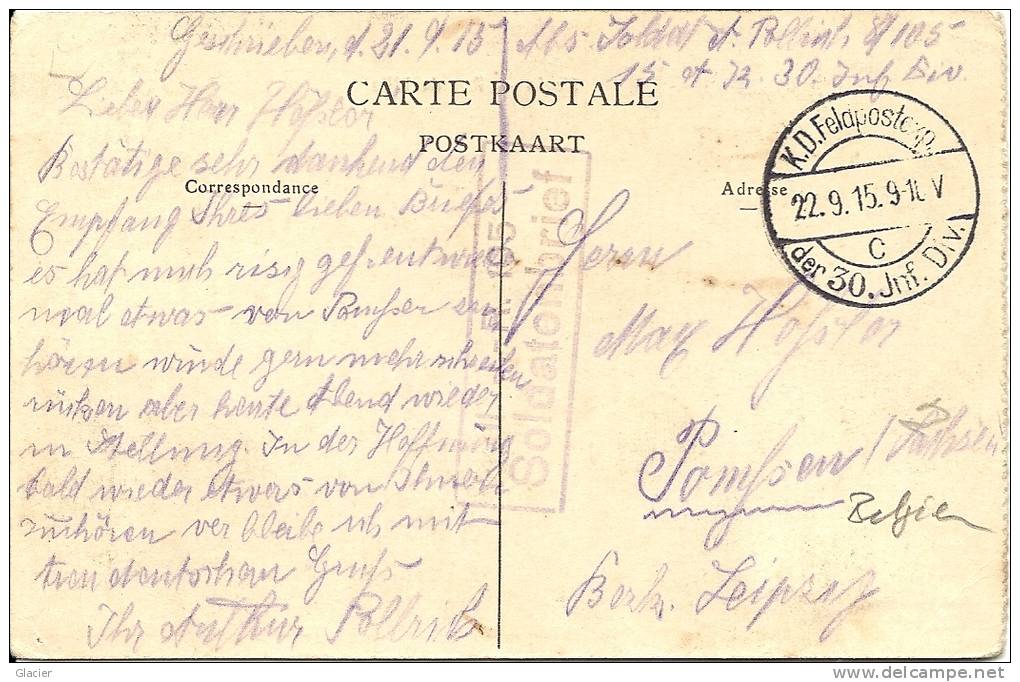 Geschrieben, d. 21.9.15
Abs. Soldat A. Pollrich 8/105
15 A. K. 30. Inf. Div.
CARTE POSTALE
POSTKAART
Correspondance
Adresse
Lieber Herr Hofstor
Bestätige sehr dankend den
Empfang Ihres lieben Briefes
es hat mich risig gefreut wieder
mal etwas von Pomßen zu
hören würde gern mehr schreiben
rücken aber heute Abend wieder
in Stellung. In der Hoffnung
bald wieder etwas von Ihnen
zuhören ver bleibe ich mit
treu deutschen Gruß
Ihr Arthur Pollrich
K.D. Feldpostexp.
22.9.15. 9-10 V
c
der 30. Inf. Div.
105
Soldatenbrief
Herrn
Max Hofstor
Pomßen (Sachsen)
Belgien
Bezk. Leipzig
Glacier
www.delcampe.net